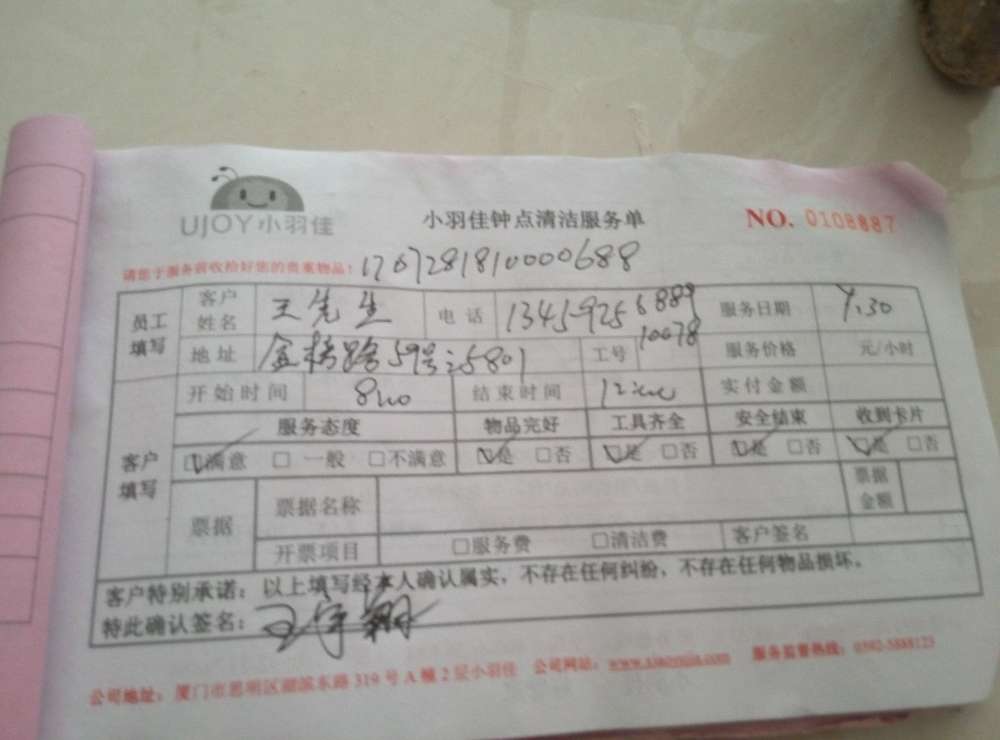 UJOY小羽佳
小羽佳钟点清洁服务单
NO. 0108887
请您于服务前收检好您的贵重物品！
1207281810000688
员工填写 客户姓名 王先生 电话 13459256889 服务日期 7.30
地址 金桥路59号 5801 工号 10078 服务价格 元/小时
客户填写 开始时间 8:00 结束时间 12:00 实付金额
服务态度 物品完好 工具齐全 安全结束 收到卡片
☑满意 □一般 □不满意 ☑是 □否 ☑是 □否 ☑是 □否 ☑是 □否
票据 票据名称 票据金额
开票项目 □服务费 □清洁费 客户签名
客户特别承诺：以上填写经本人确认属实，不存在任何纠纷，不存在任何物品损坏。
特此确认签名：王宇翔
公司地址：厦门市思明区湖滨东路319号A幢2层小羽佳 公司网站： 服务监督热线：0592-5888123